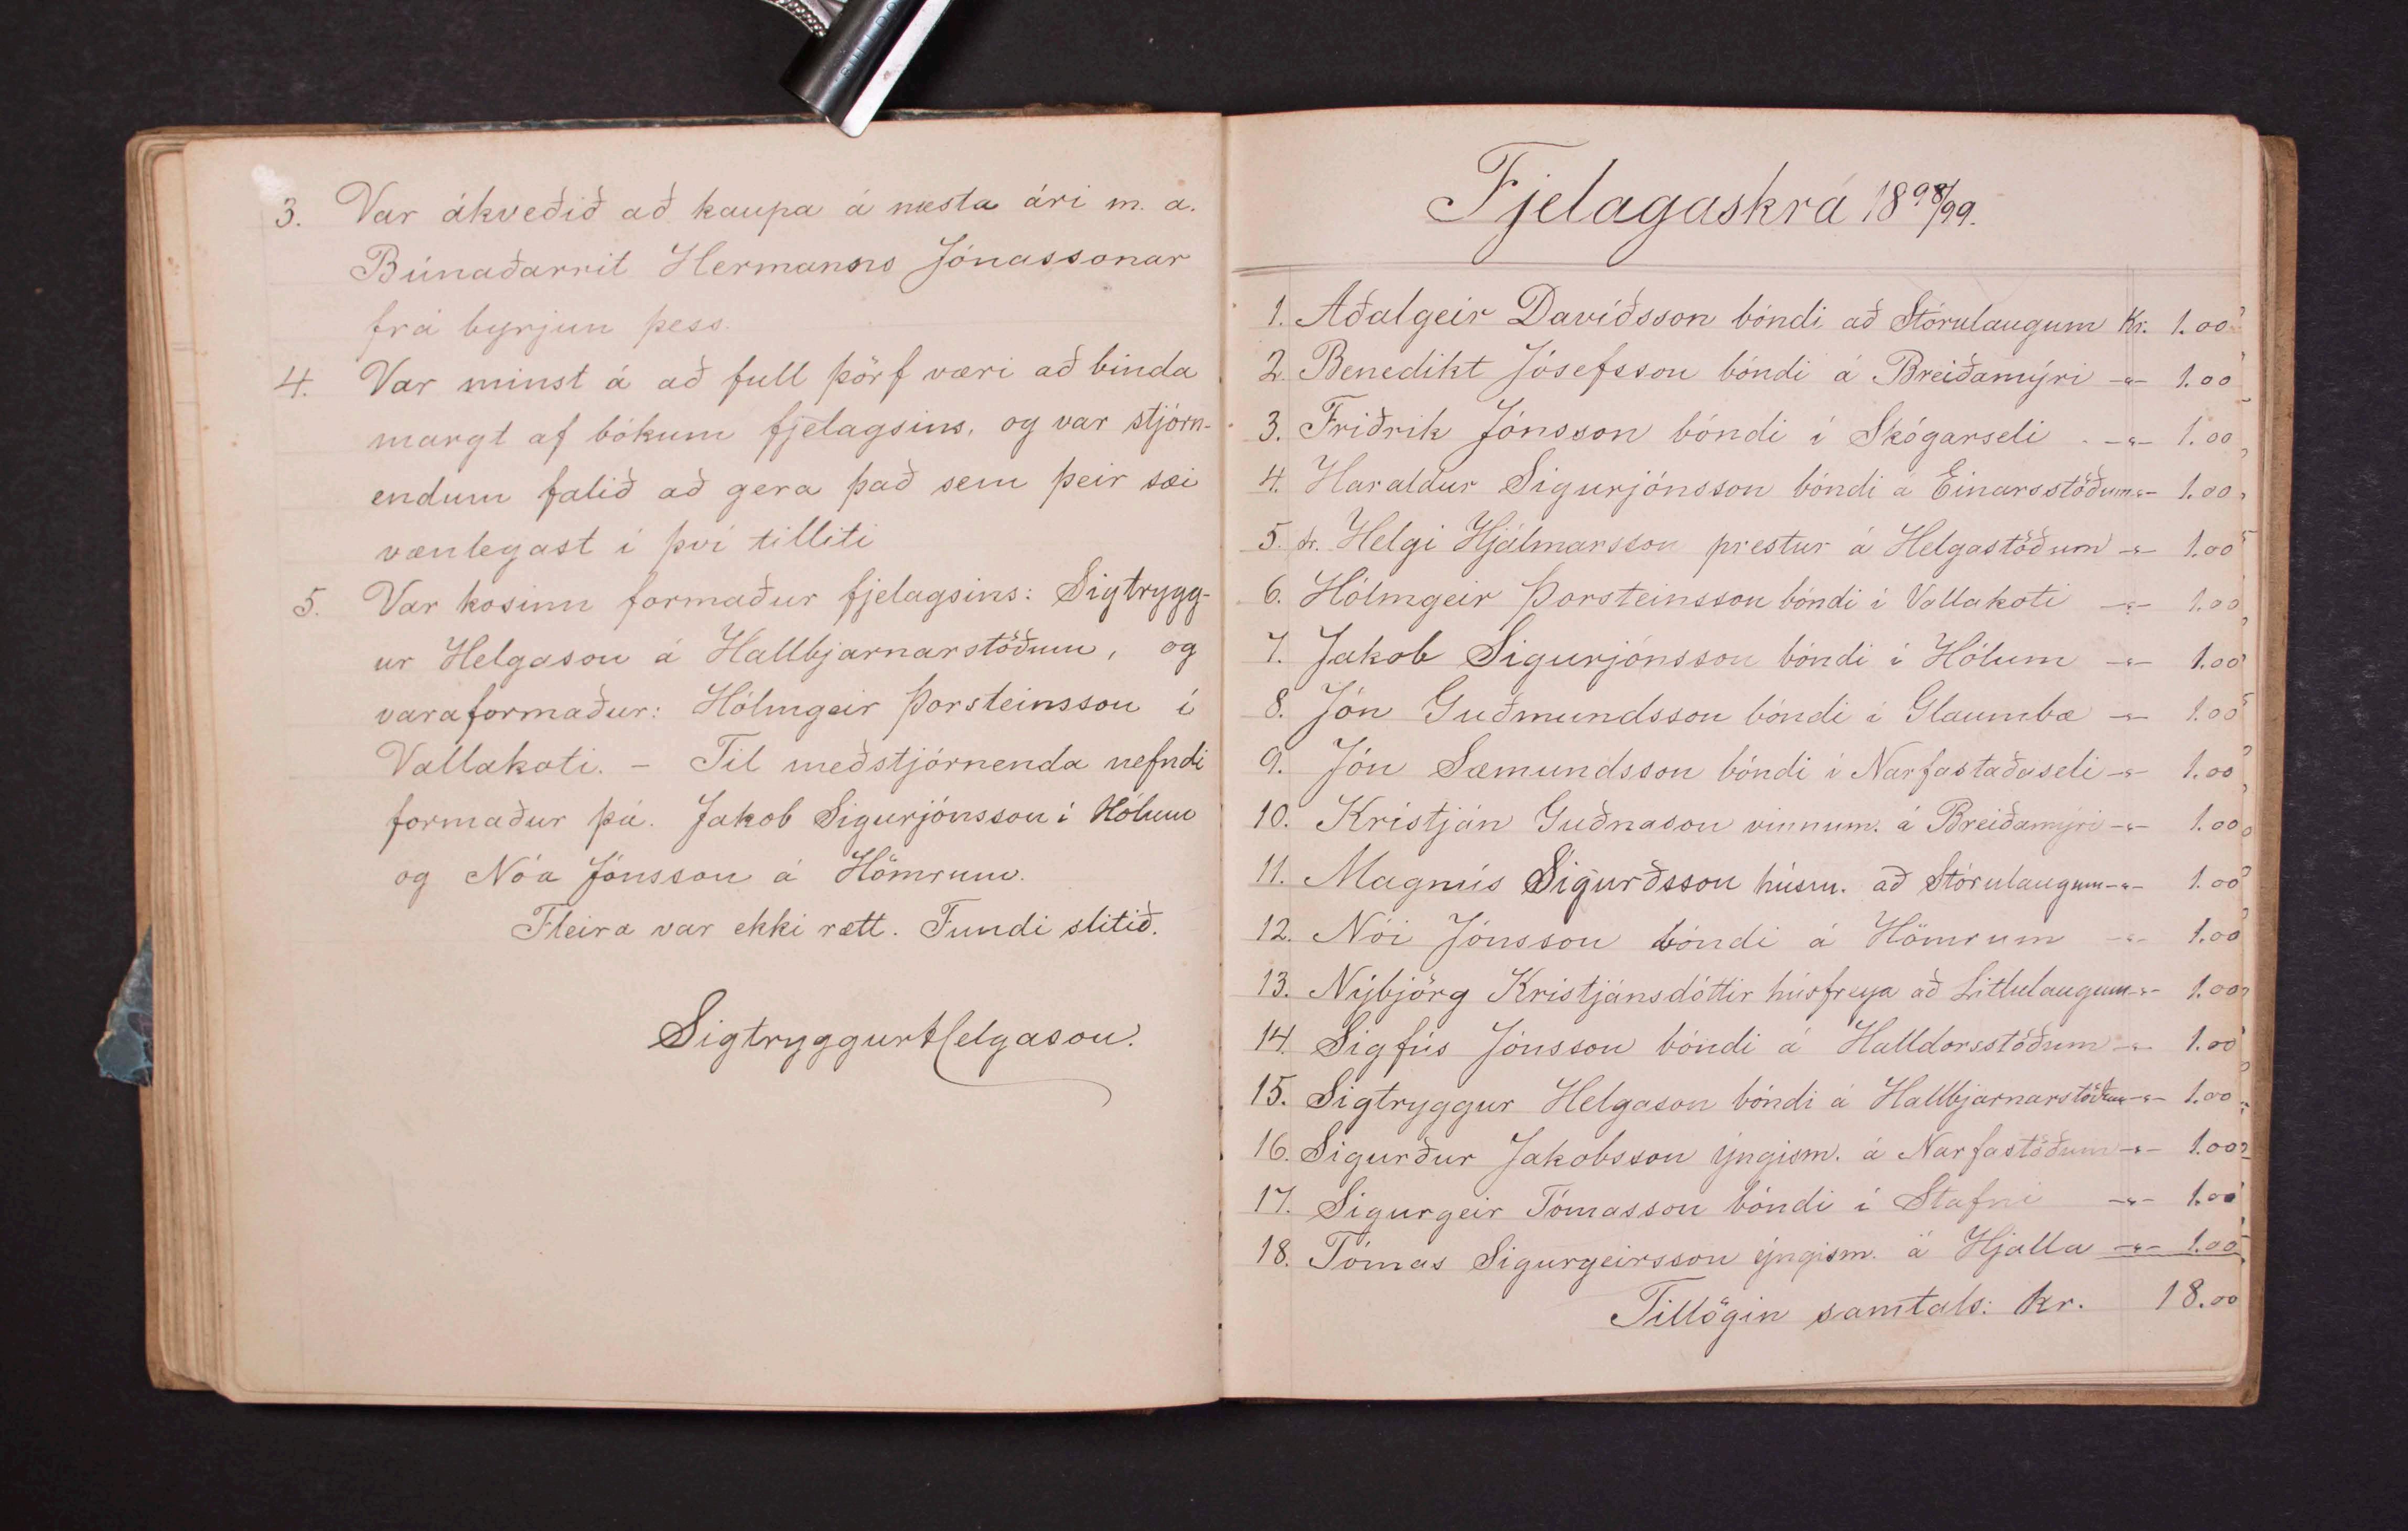 3. Var ákveðið að kaupa á næsta ári m. a.
Búnaðarrit Hermanns Jónassonar
frá byrjun þess.
4. Var minst á að full þörf væri að binda
margt af bókum fjelagsins, og var stjórn-
endum falið að gera það sem þeir sæi
vænlegast í því tilliti
5. Var kosinn formaður fjelagsins: Sigtrygg-
ur Helgason á Hallbjarnarstöðum, og
varaformaður: Hólmgeir Þorsteinsson í
Vallakoti. - Til meðstjórnenda nefndi
formaður þá. Jakob Sigurjónsson í Hólum
og Nóa Jónsson á Hömrum.
Fleira var ekki rætt. Fundi slitið.
Sigtryggur Helgason.
Fjelagaskrá 1898/99.
1. Aðalgeir Davíðsson bóndi að Stórulaugum Kr. 1.00
2. Benedikt Jósefsson bóndi á Breiðamýri -"- 1.00
3. Friðrik Jónsson bóndi í Skógarseli -"- 1.00
4. Haraldur Sigurjónsson bóndi á Einarsstöðum -"- 1.00
5. sr. Helgi Hjálmarsson prestur á Helgastöðum -"- 1.00
6. Hólmgeir Þorsteinsson bóndi í Vallakoti -"- 1.00
7. Jakob Sigurjónsson bóndi í Hólum -"- 1.00
8. Jón Guðmundsson bóndi í Glaumbæ -"- 1.00
9. Jón Sæmundsson bóndi í Narfastaðaseli -"- 1.00
10. Kristján Guðnason vinnum. á Breiðamýri -"- 1.00
11. Magnús Sigurðsson húsm. að Stórulaugum -"- 1.00
12. Nói Jónsson bóndi á Hömrum -"- 1.00
13. Nýbjörg Kristjánsdóttir húsfreya að Litlulaugum -"- 1.00
14. Sigfús Jónsson bóndi á Halldorsstöðum -"- 1.00
15. Sigtryggur Helgason bóndi á Hallbjarnarstöðum -"- 1.00
16. Sigurður Jakobsson yngism. á Narfastöðum -"- 1.00
17. Sigurgeir Tómasson bóndi í Stafni -"- 1.00
18. Tómas Sigurgeirsson yngism. á Hjalla -"- 1.00
Tillögin samtals: kr. 18.00